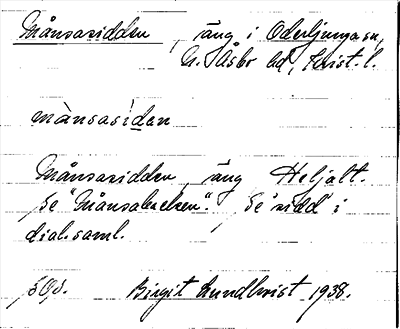 Månsaridden, äng i Oderljunga sn,
N. Åsbo hd, Krist. l.
mànsasiden
Månsaridden, äng Heljalt.
Se "Månsabacken". Se 'ridd' i
dial.saml.
sOs. Birgit Lundkvist 1938.